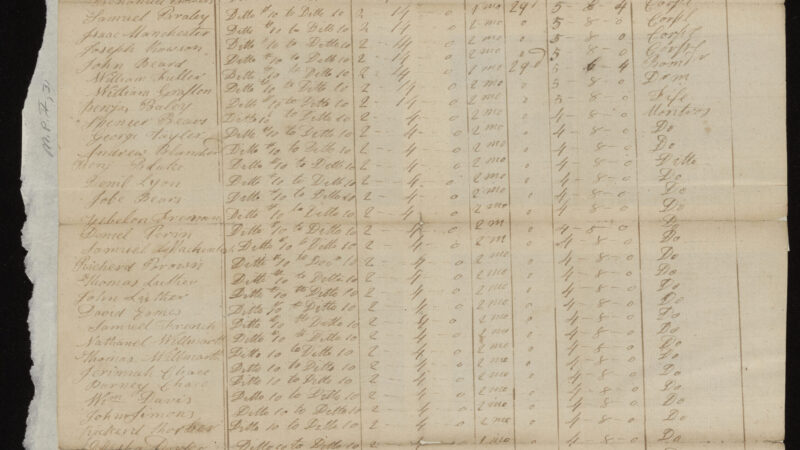 Samuel Braley Ditto 10 to Ditto 10 2 - 14 - 0 1 mo 29d 5 - 8 - 4 Corpl
Isaac Manchester Ditto 10 to Ditto 10 2 - 14 - 0 2 mo 5 - 8 - 0 Corpl
Joseph Rowson Ditto 10 to Ditto 10 2 - 14 - 0 2 mo 5 - 8 - 0
John Beard Ditto 10 to Ditto 10 2 - 14 - 0 1 mo 29d 5 - 6 - 4
William Ditto 10 to Ditto 10 2 - 14 - 0 2 mo 5 - 8 - 0
William Grafton Ditto 10 to Ditto 10 2 - 14 - 0 2 mo 5 - 8 - 0 Fife
Baley Ditto 10 to Ditto 10 2 - 14 - 0 2 mo 5 - 8 - 0
Spencer Bears Ditto 10 to Ditto 10 2 - 4 - 0 2 mo 4 - 8 - 0
George Ditto 10 to Ditto 10 2 - 4 - 0 2 mo 4 - 8 - 0 Do
Andrew Ditto 10 to Ditto 10 2 - 4 - 0 2 mo 4 - 8 - 0 Do
Blake Ditto 10 to Ditto 10 2 - 4 - 0 2 mo 4 - 8 - 0 Ditto
Lyon Ditto 10 to Ditto 10 2 - 4 - 0 2 mo 4 - 8 - 0 Do
Jobe Bears Ditto 10 to Ditto 10 2 - 4 - 0 2 mo 4 - 8 - 0 Do
Freeman Ditto 10 to Ditto 10 2 - 4 - 0 2 mo 4 - 8 - 0 Do
Daniel Perin Ditto 10 to Ditto 10 2 - 4 - 0 2 m 4 - 8 - 0 Do
Samuel Ditto 10 to Ditto 10 2 - 4 - 0 2 m 4 - 8 - 0 Do
Richerd Brown Ditto 10 to Ditto 10 2 - 4 - 0 2 mo 4 - 8 - 0 Do
Thomas Luther Ditto 10 to Ditto 10 2 - 4 - 0 2 mo 4 - 8 - 0 Do
John Luther Ditto 10 to Ditto 10 2 - 4 - 0 2 mo 4 - 8 - 0 Do
David James Ditto 10 to Ditto 10 2 - 4 - 0 2 mo 4 - 8 - 0 Do
Samuel French Ditto 10 to Ditto 10 2 - 4 - 0 2 mo 4 - 8 - 0 Do
Nathanel Willmarth Ditto 10 to Ditto 10 2 - 4 - 0 2 mo 4 - 8 - 0 Do
Thomas Willmarth Ditto 10 to Ditto 10 2 - 4 - 0 2 mo 4 - 8 - 0 Do
Jerimah Chace Ditto 10 to Ditto 10 2 - 4 - 0 2 mo 4 - 8 - 0 Do
Barney Chace Ditto 10 to Ditto 10 2 - 4 - 0 2 mo 4 - 8 - 0 Do
Wm Davis Ditto 10 to Ditto 10 2 - 4 - 0 2 mo 4 - 8 - 0 Do
John Simons Ditto 10 to Ditto 10 2 - 4 - 0 2 mo 4 - 8 - 0 Do
Rickerd Thorber Ditto 10 to Ditto 10 2 - 4 - 0 2 mo 4 - 8 - 0 Do
Ditto 10 to Ditto 10 2 - 4 - 0 1 mo 4 - 8 - 0 Do